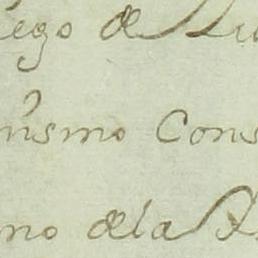 ego de
mismo Cons
no dela